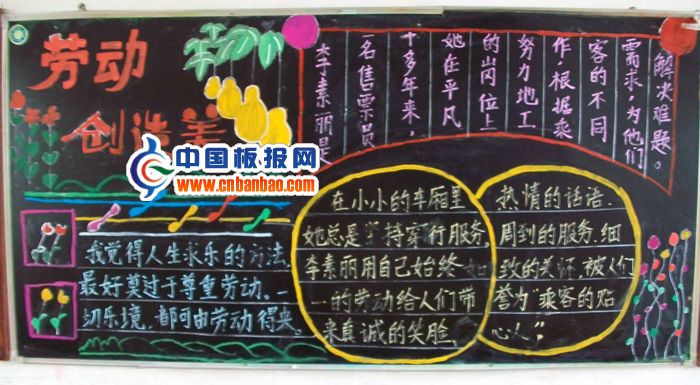 劳动
创造美
中国板报网
www.cnbanbao.com
李素丽是
一名售票员
十多年来，
她在平凡
的岗位上
努力地工
作，根据乘
客的不同
需求，为他们
解决难题。
我觉得人生求乐的方法，
最好莫过于尊重劳动。一
切乐境，都可由劳动得来。
在小小的车厢里
她总是坚持穿行服务，
李素丽用自己始终如
一的劳动给人们带
来真诚的笑脸、
热情的话语、
周到的服务、细
致的关怀，被人们
誉为“乘客的贴
心人”